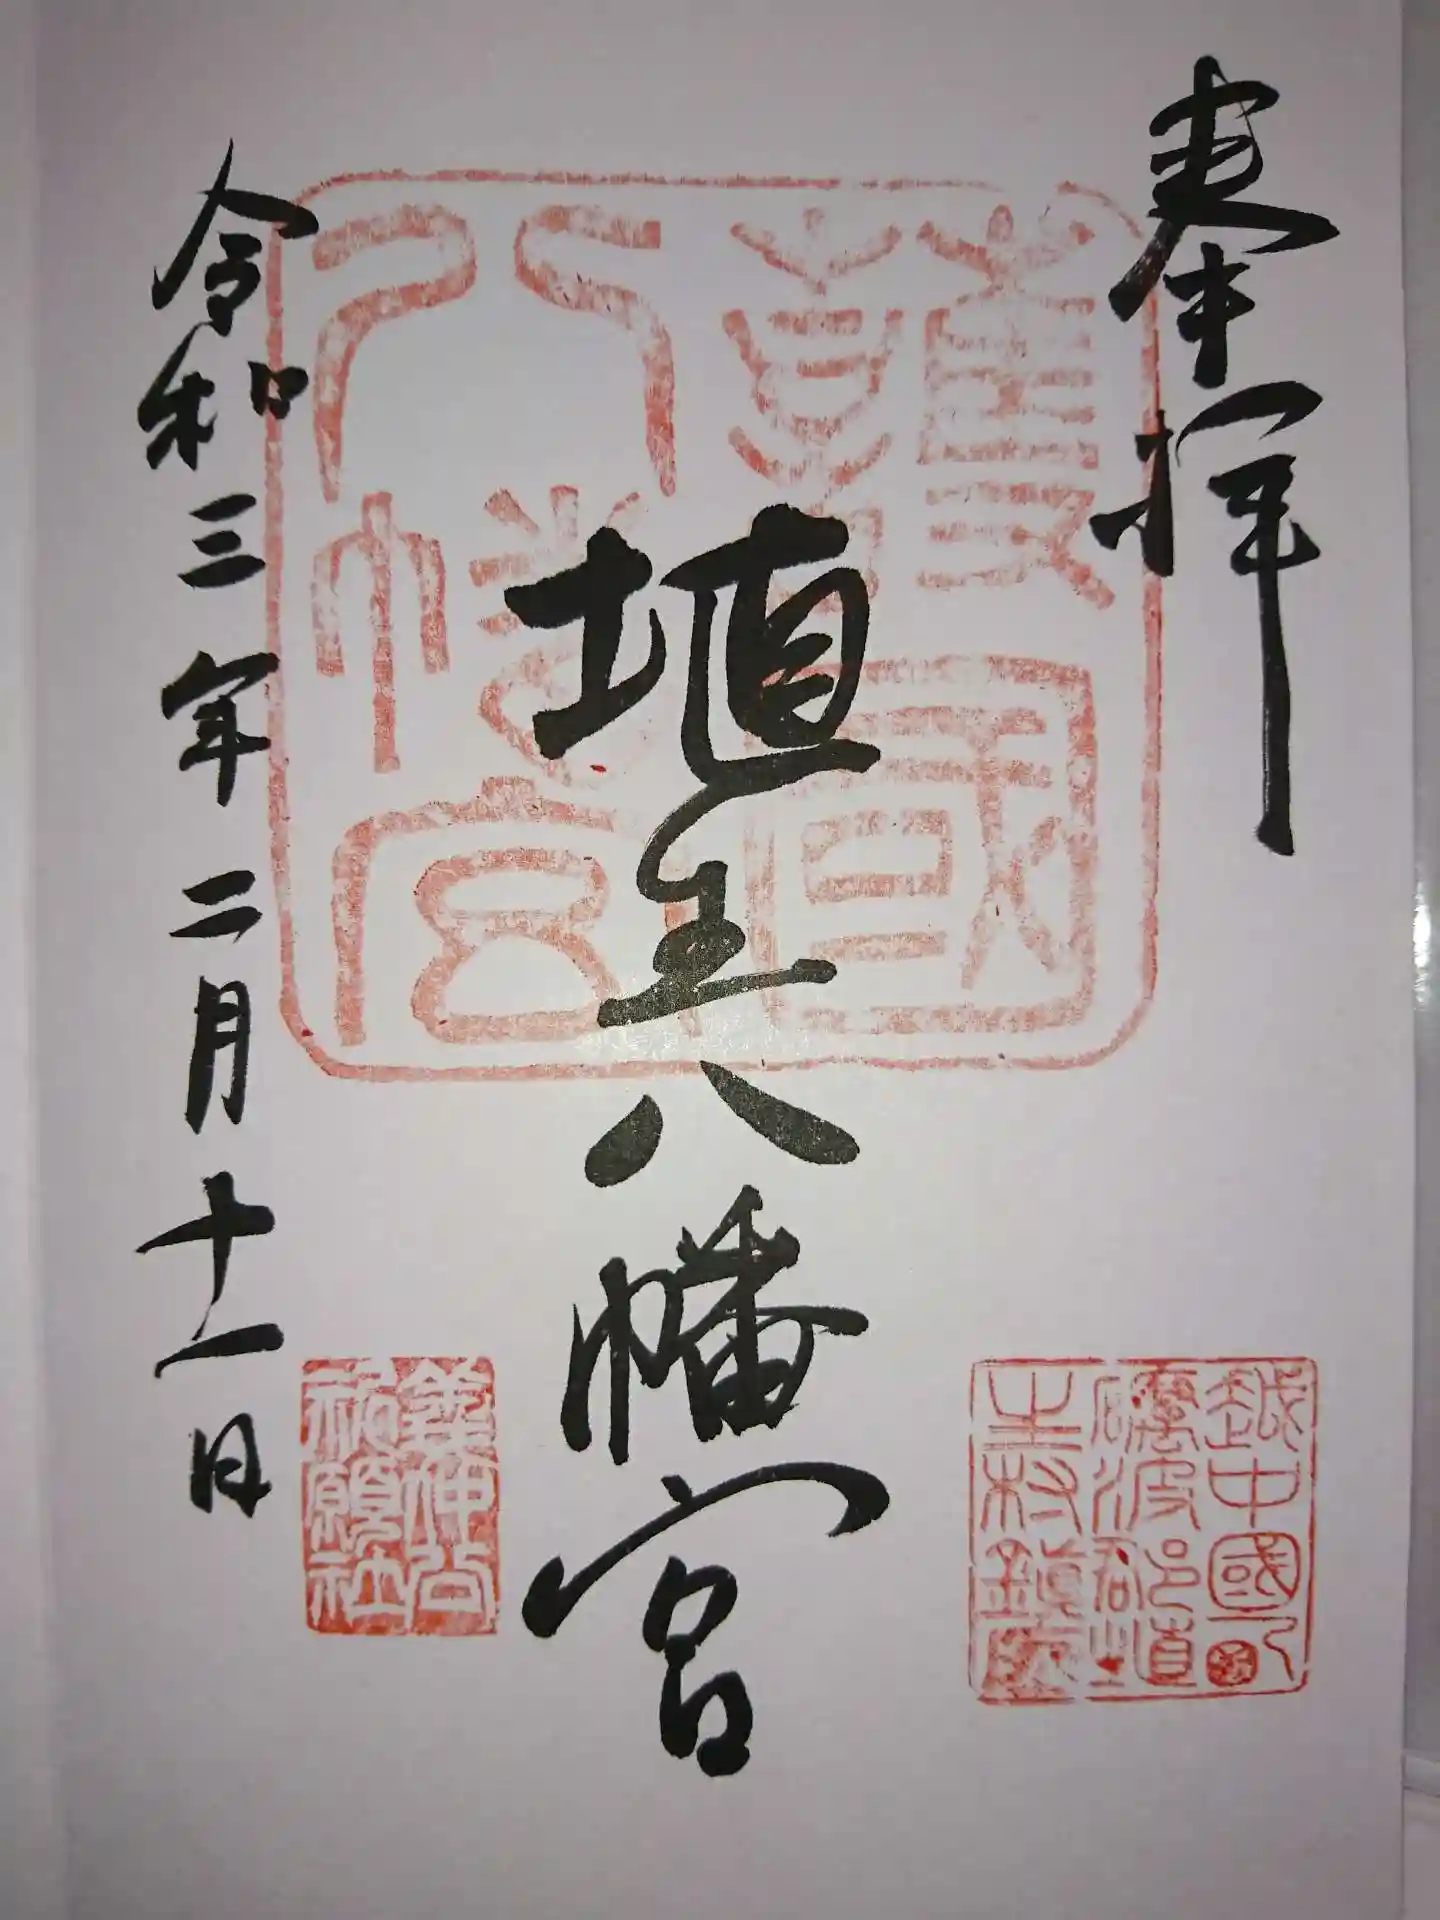 奉拝
護國
八幡宮
埴生八幡宮
越中國
礪波郡埴
生村鎮座
祈願社
令和三年二月十一日